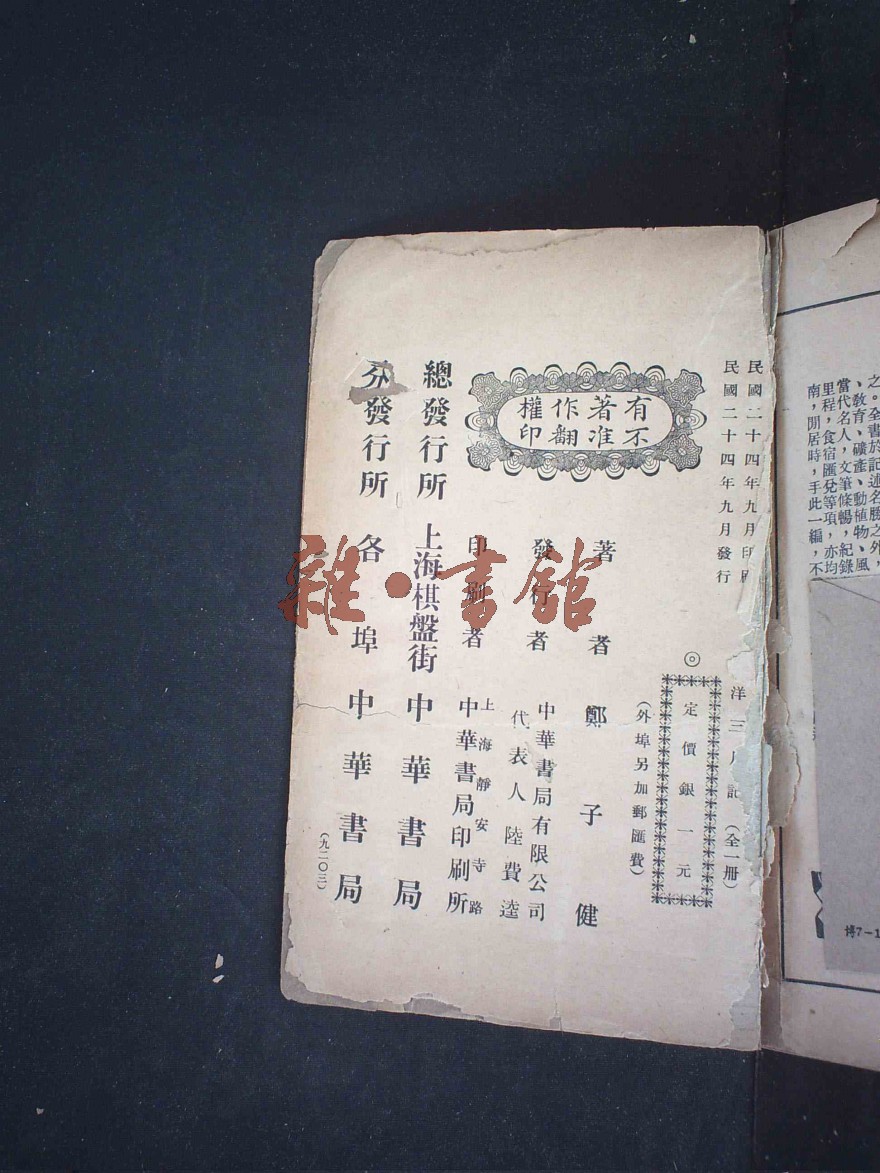 民國二十四年九月印刷
民國二十四年九月發行
洋三月記（全一冊）
◎定價銀一元
（外埠另加郵匯費）
有著作權
不准翻印
著者 鄭子健
發行者 中華書局有限公司
代表人 陸費逵
印刷者 上海靜安寺路
中華書局印刷所
總發行所 上海棋盤街 中華書局
分發行所 各埠中華書局
（九二〇三）
雜·書館
之。全書於記述名勝之外，
、教育、礦產、動植物、風
當代名人，文筆條暢，紀錄
里程，食宿匯兌等項，亦均
南，閒居時，手此一編，不
博7-1